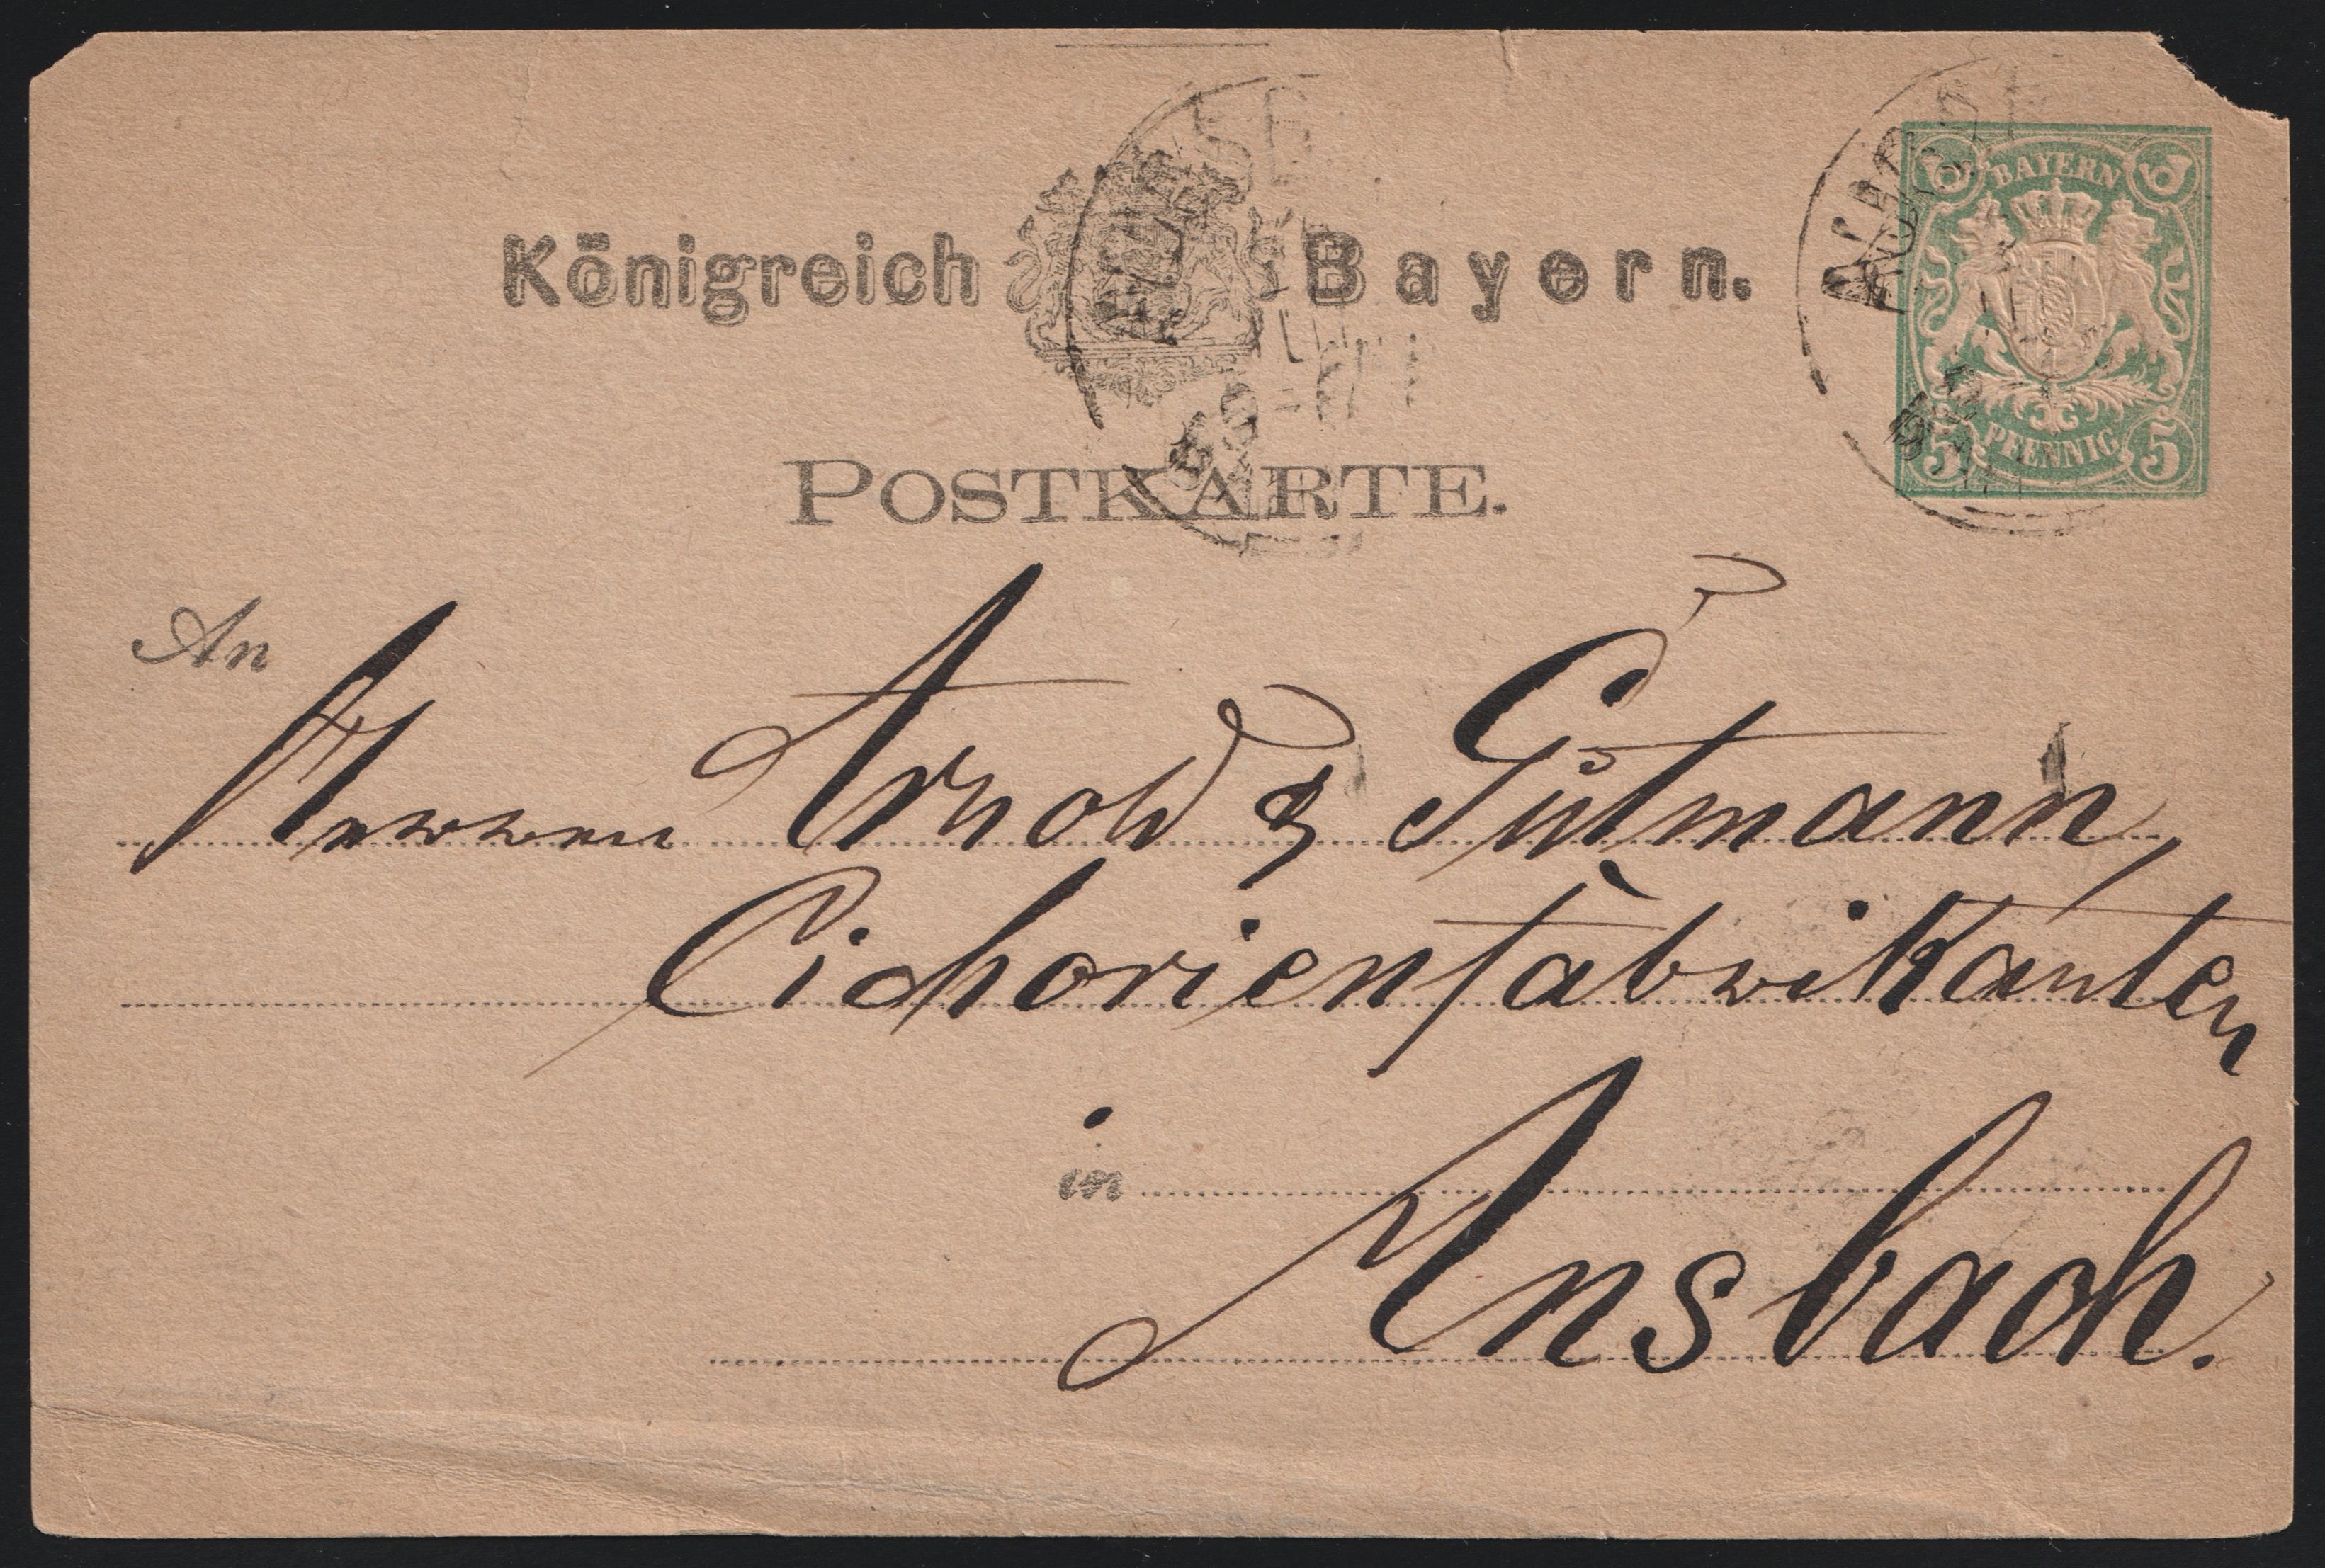 Königreich Bayern.
BAYERN
5 PFENNIG 5
POSTKARTE.
An
Herren Arnold & Gutmann,
Cichorienfabrikanten
in
Ansbach.